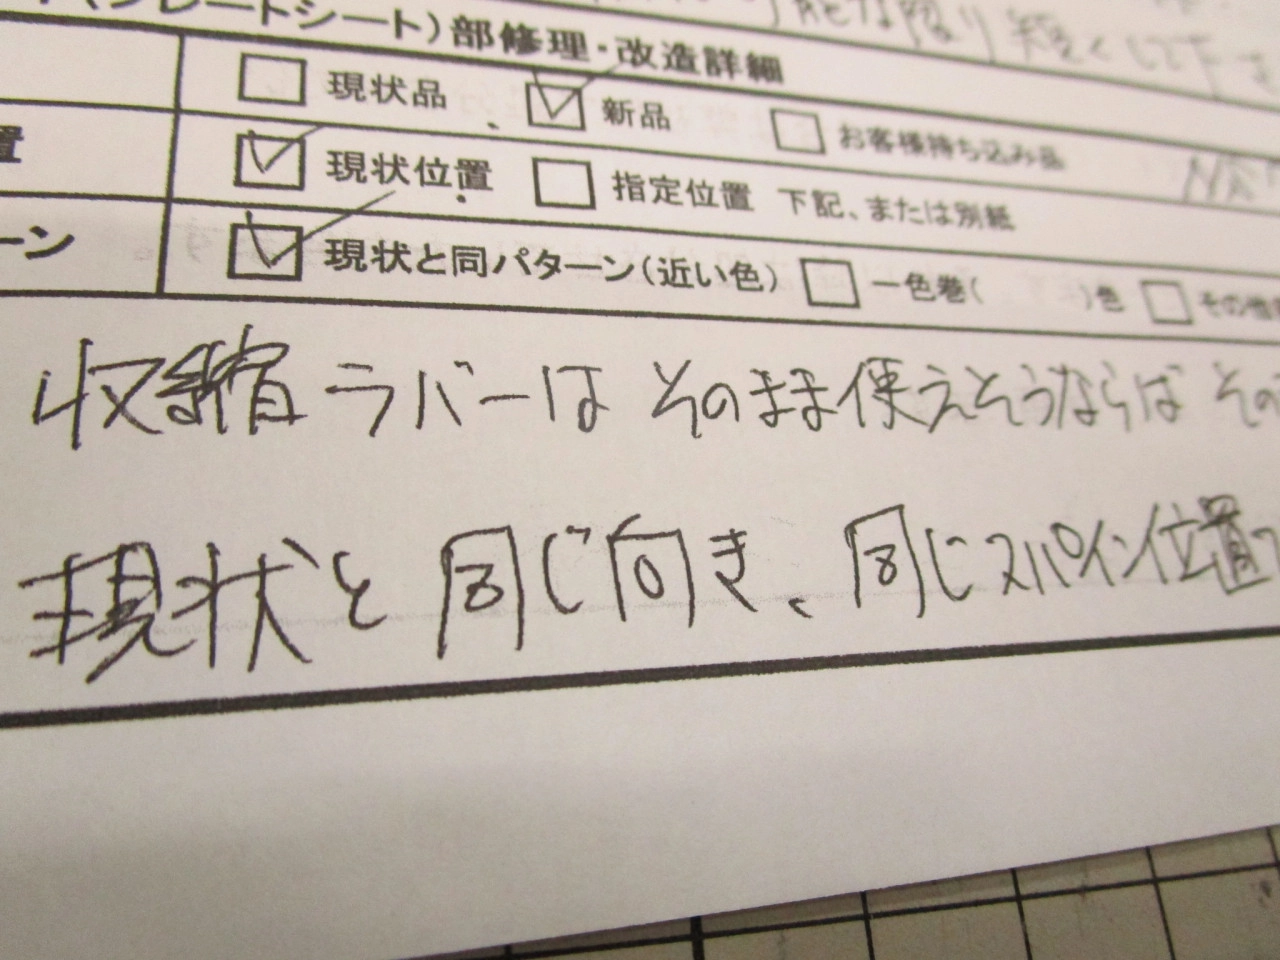 (プレートシート)部修理・改造詳細
り短くして下さ
現状品 新品 お客様持ち込み品
置 現状位置 指定位置 下記、または別紙
ーン 現状と同パターン(近い色) 一色巻( )色 その他
収縮ラバーは そのまま使えそうならば その
現状と同じ向き、同じスパイン位置